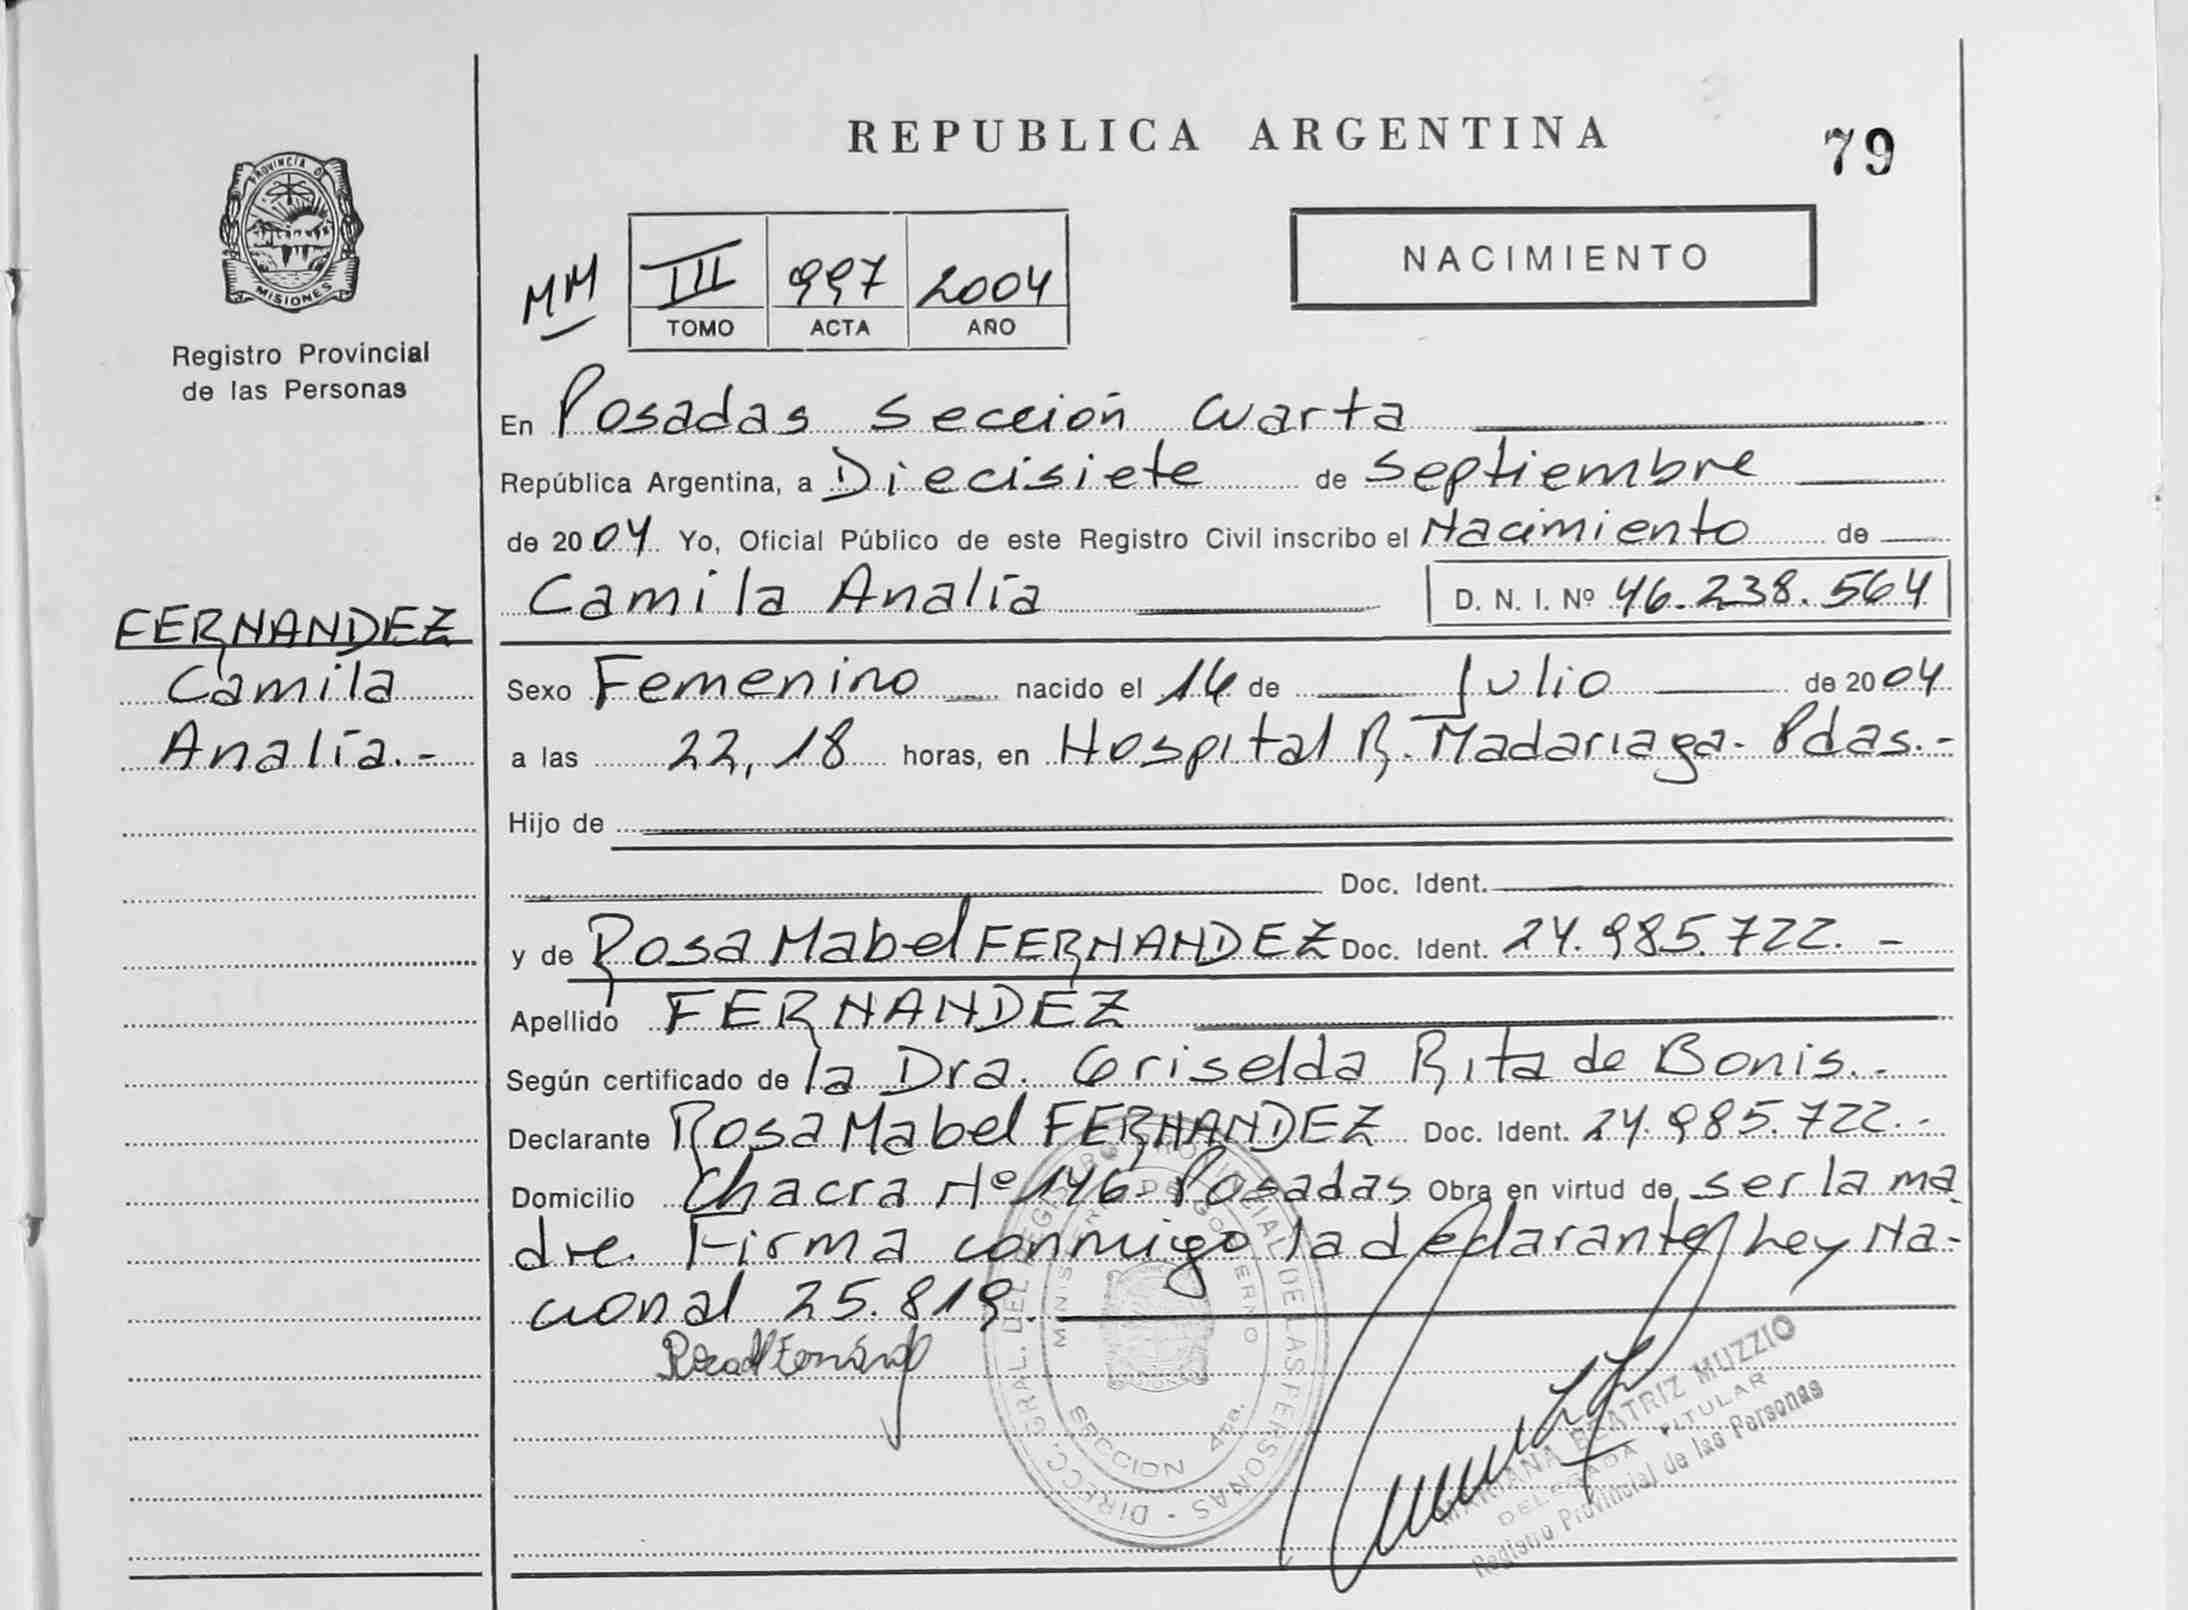 REPUBLICA ARGENTINA
79
PROVINCIA D
MISIONES
Registro Provincial
de las Personas
MM
III 997 2004
TOMO ACTA AÑO
NACIMIENTO
En Posadas Sección Cuarta
República Argentina, a Diecisiete de Septiembre
de 2004 Yo, Oficial Público de este Registro Civil inscribo el Nacimiento de
Camila Analía D. N. I. Nº 46.238.564
FERNANDEZ
Camila
Analía.-
Sexo Femenino nacido el 14 de Julio de 2004
a las 22,18 horas, en Hospital R. Madariaga- Pdas.-
Hijo de
Doc. Ident.
y de Rosa Mabel FERNANDEZ Doc. Ident. 24.985.722.-
Apellido FERNANDEZ
Según certificado de la Dra. Griselda Rita de Bonis.-
Declarante Rosa Mabel FERNANDEZ Doc. Ident. 24.985.722.-
Domicilio Chacra Nº 146- Posadas Obra en virtud de ser la ma
dre. Firma conmigo la declarante/ Ley Na-
cional 25.819.
DIRECC. GRAL. DEL REGISTRO PROVINCIAL DE LAS PERSONAS
MINISTERIO DE GOBIERNO
SECCION 4ta.
MARIANA BEATRIZ MUZZIO
DELEGADA TITULAR
Registro Provincial de las Personas